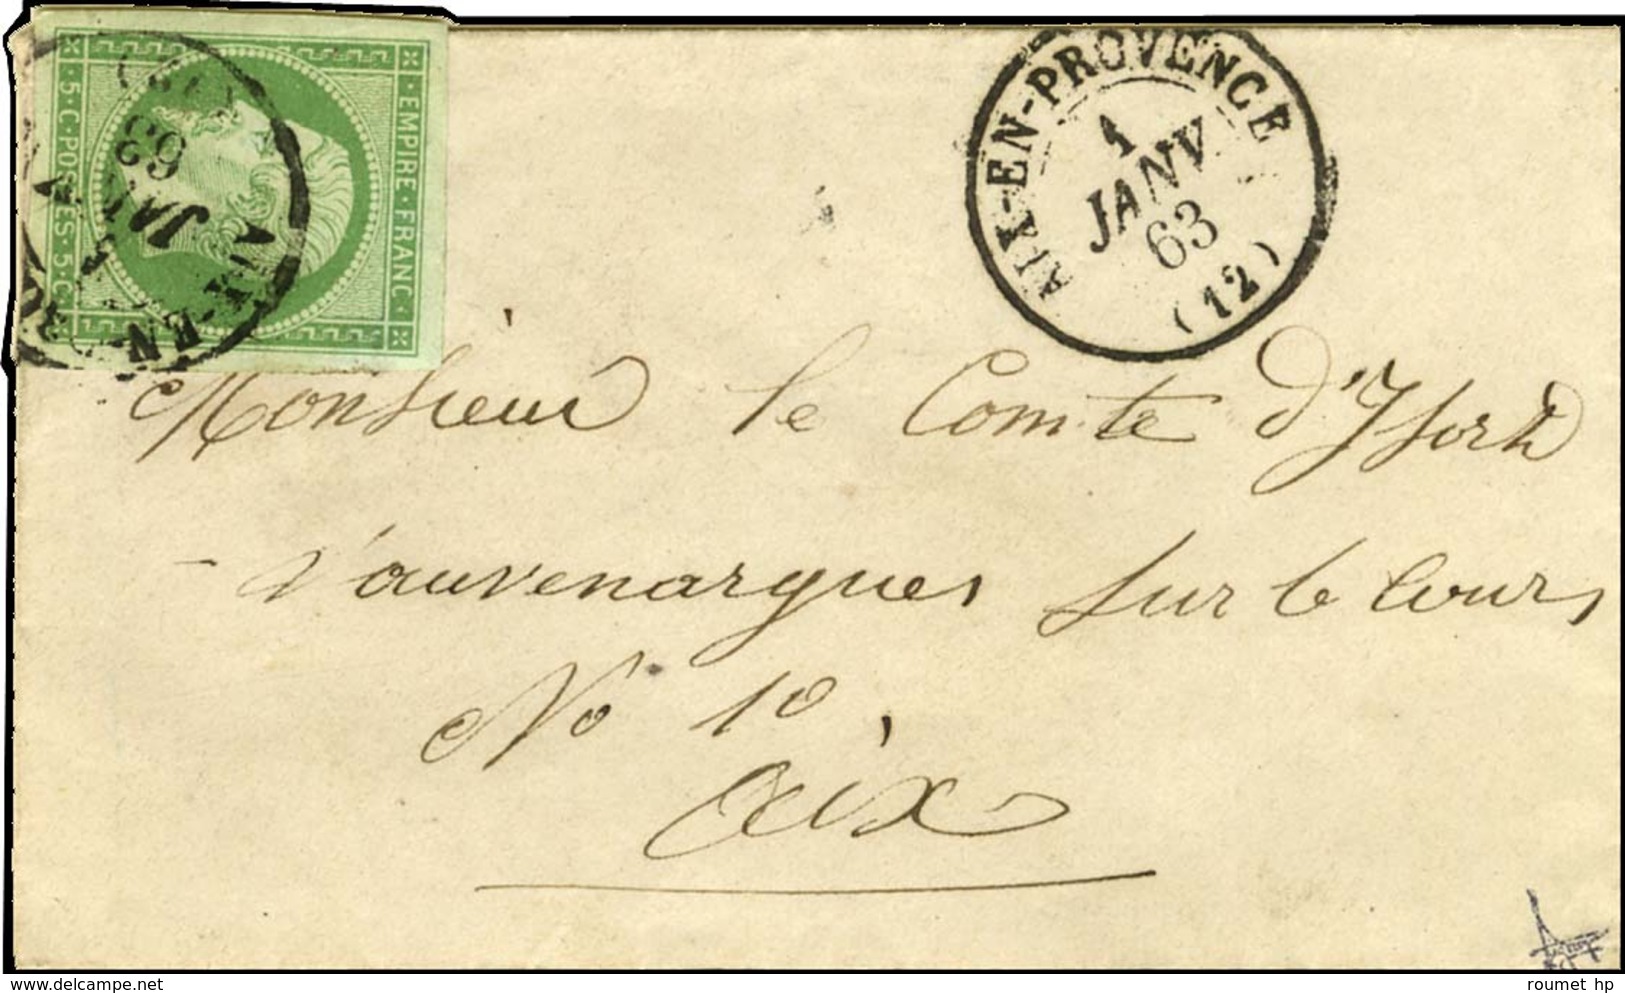 EMPIRE · FRANC ·
5 · C · POSTES · 5 · C ·
AIX-EN-
JANV
63
(12)
AIX-EN-PROVENCE
1
JANV
63
(12)
Monsieur le Comte d'Isoard
Vauvenargues sur le Cours
No 10,
Aix
delcampe.net
roumet hp